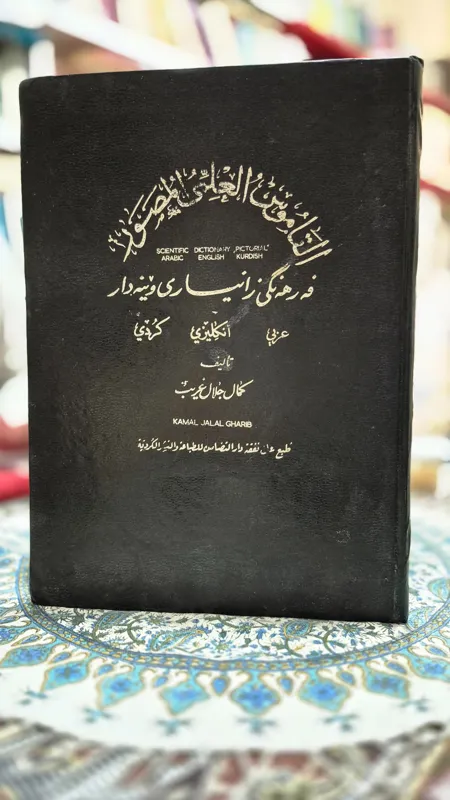 القاموس العلمي المصور
SCIENTIFIC DICTIONARY „PICTORIAL"
ARABIC ENGLISH KURDISH
فەرهەنگی زانیاری وێنەدار
عربي انكليزي كردي
تأليف
كمال جلال غريب
KAMAL JALAL GHARIB
طبع على نفقة دار التضامن للطباعة والنشر الكردية